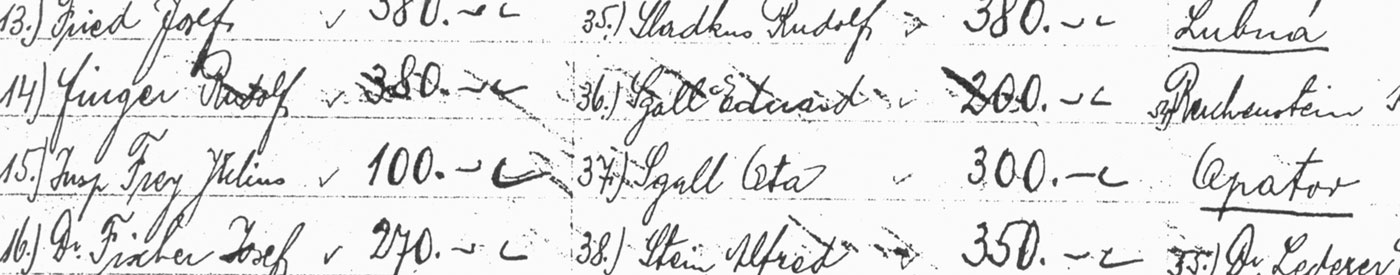 13.) Fried Josef 380.-
35.) Sladkus Rudolf 380.-
Lubná
14.) Finger Rudolf 380.-
36.) Sgall Eduard 200.-
Reichenstein
15.) Insp Frey Julius 100.-
37.) Sgall Ota 300.-
Opatov
16.) Dr. Fischer Josef 270.-
38.) Stein Alfred 350.-
Dr. Lederer